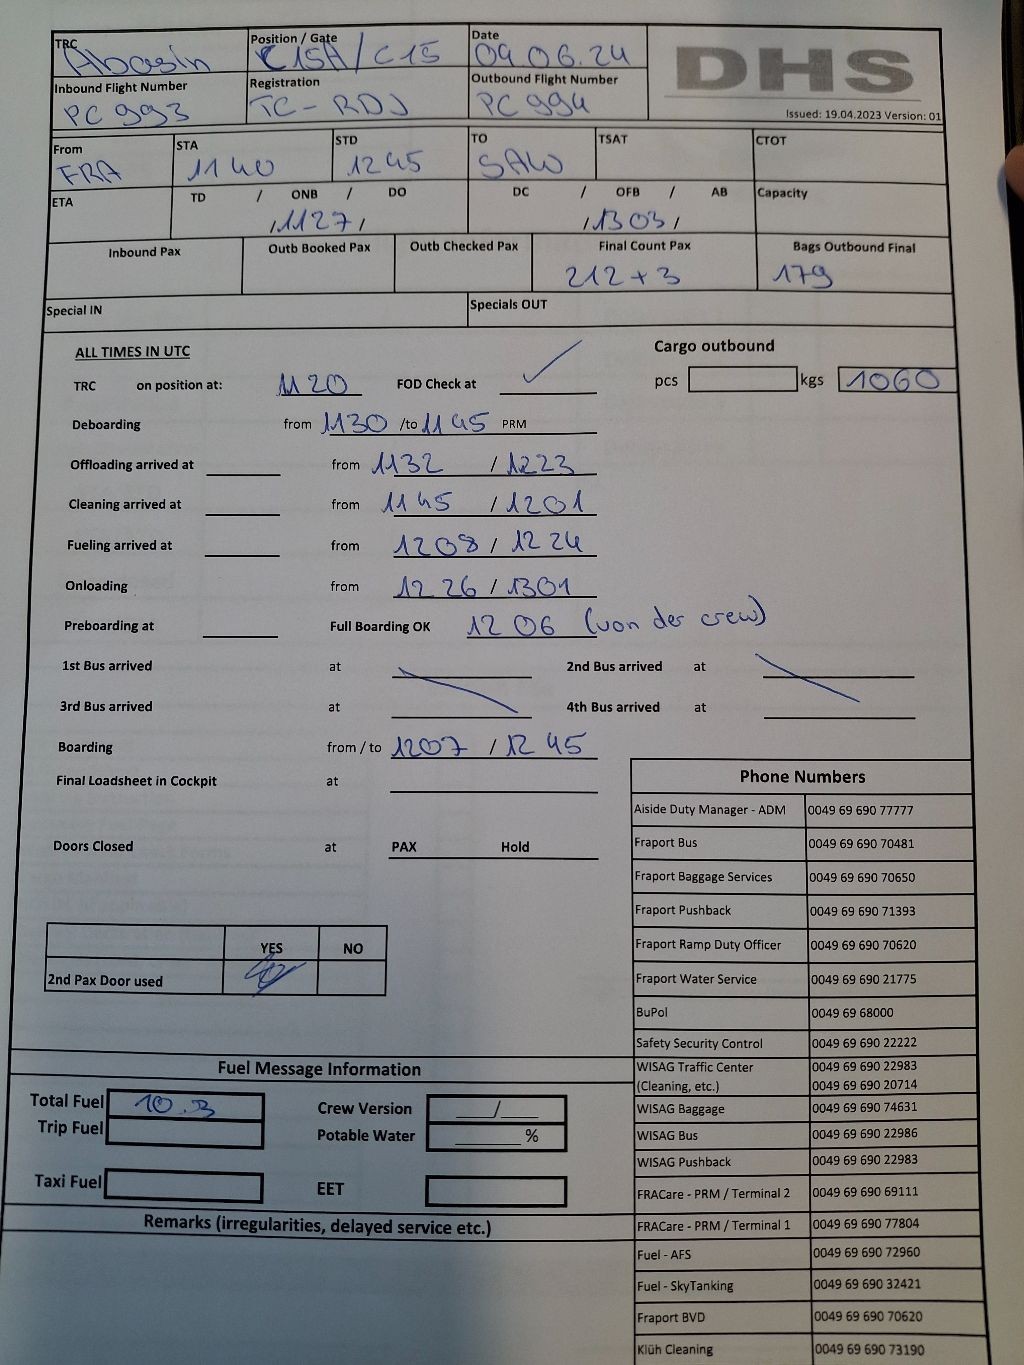 TRC Abasin Position / Gate C15A/C15 Date 09.06.24 DHS
Inbound Flight Number PC 993 Registration TC-RDJ Outbound Flight Number PC 994 Issued: 19.04.2023 Version: 01
From FRA STA 1140 STD 1245 TO SAW TSAT CTOT
ETA TD / ONB / DO DC / OFB / AB Capacity
/1127/ /1303/
Inbound Pax Outb Booked Pax Outb Checked Pax Final Count Pax Bags Outbound Final
212 + 3 179
Special IN Specials OUT
ALL TIMES IN UTC Cargo outbound
TRC on position at: 1120 FOD Check at pcs kgs 1060
Deboarding from 1130 /to 1145 PRM
Offloading arrived at from 1132 / 1223
Cleaning arrived at from 1145 / 1201
Fueling arrived at from 1208 / 1224
Onloading from 1226 / 1301
Preboarding at Full Boarding OK 1206 (von der crew)
1st Bus arrived at 2nd Bus arrived at
3rd Bus arrived at 4th Bus arrived at
Boarding from / to 1207 / 1245
Final Loadsheet in Cockpit at
Doors Closed at PAX Hold
YES NO
2nd Pax Door used
Phone Numbers
Aiside Duty Manager - ADM 0049 69 690 77777
Fraport Bus 0049 69 690 70481
Fraport Baggage Services 0049 69 690 70650
Fraport Pushback 0049 69 690 71393
Fraport Ramp Duty Officer 0049 69 690 70620
Fraport Water Service 0049 69 690 21775
BuPol 0049 69 68000
Safety Security Control 0049 69 690 22222
WISAG Traffic Center 0049 69 690 22983
(Cleaning, etc.) 0049 69 690 20714
WISAG Baggage 0049 69 690 74631
WISAG Bus 0049 69 690 22986
WISAG Pushback 0049 69 690 22983
FRACare - PRM / Terminal 2 0049 69 690 69111
FRACare - PRM / Terminal 1 0049 69 690 77804
Fuel - AFS 0049 69 690 72960
Fuel - SkyTanking 0049 69 690 32421
Fraport BVD 0049 69 690 70620
Klüh Cleaning 0049 69 690 73190
Fuel Message Information
Total Fuel 10.3 Crew Version /
Trip Fuel Potable Water %
Taxi Fuel EET
Remarks (irregularities, delayed service etc.)